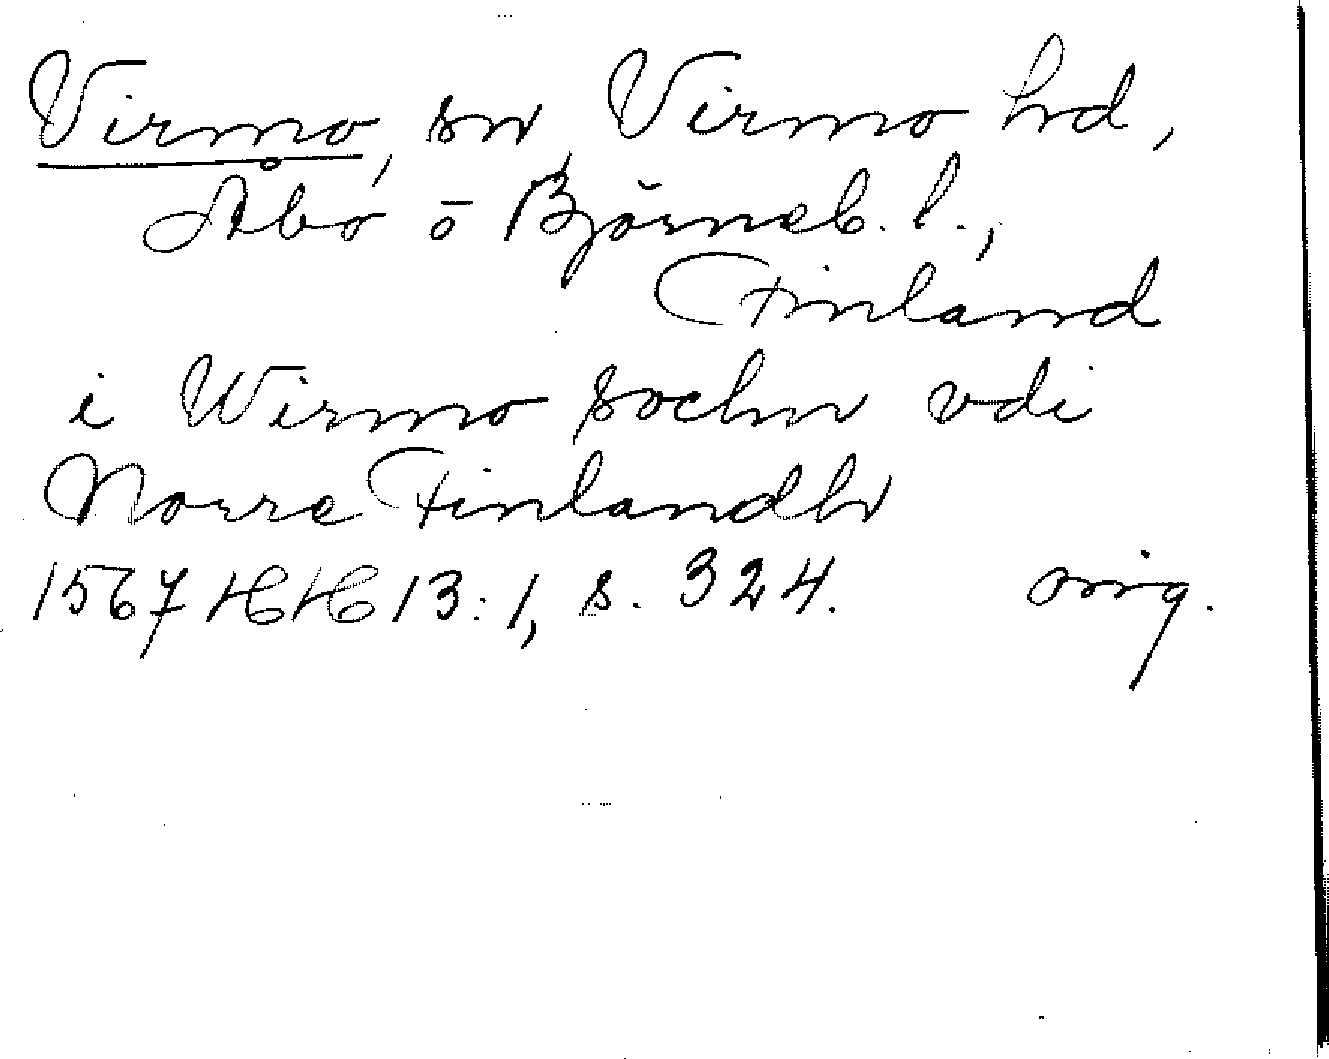 Virmo, sn, Virmo hd,
Åbo o Björneb. l.,
Finland
i Wirmo sochn vdi
Norre Finlandh
1567 HH 13:1, s. 324. orig.